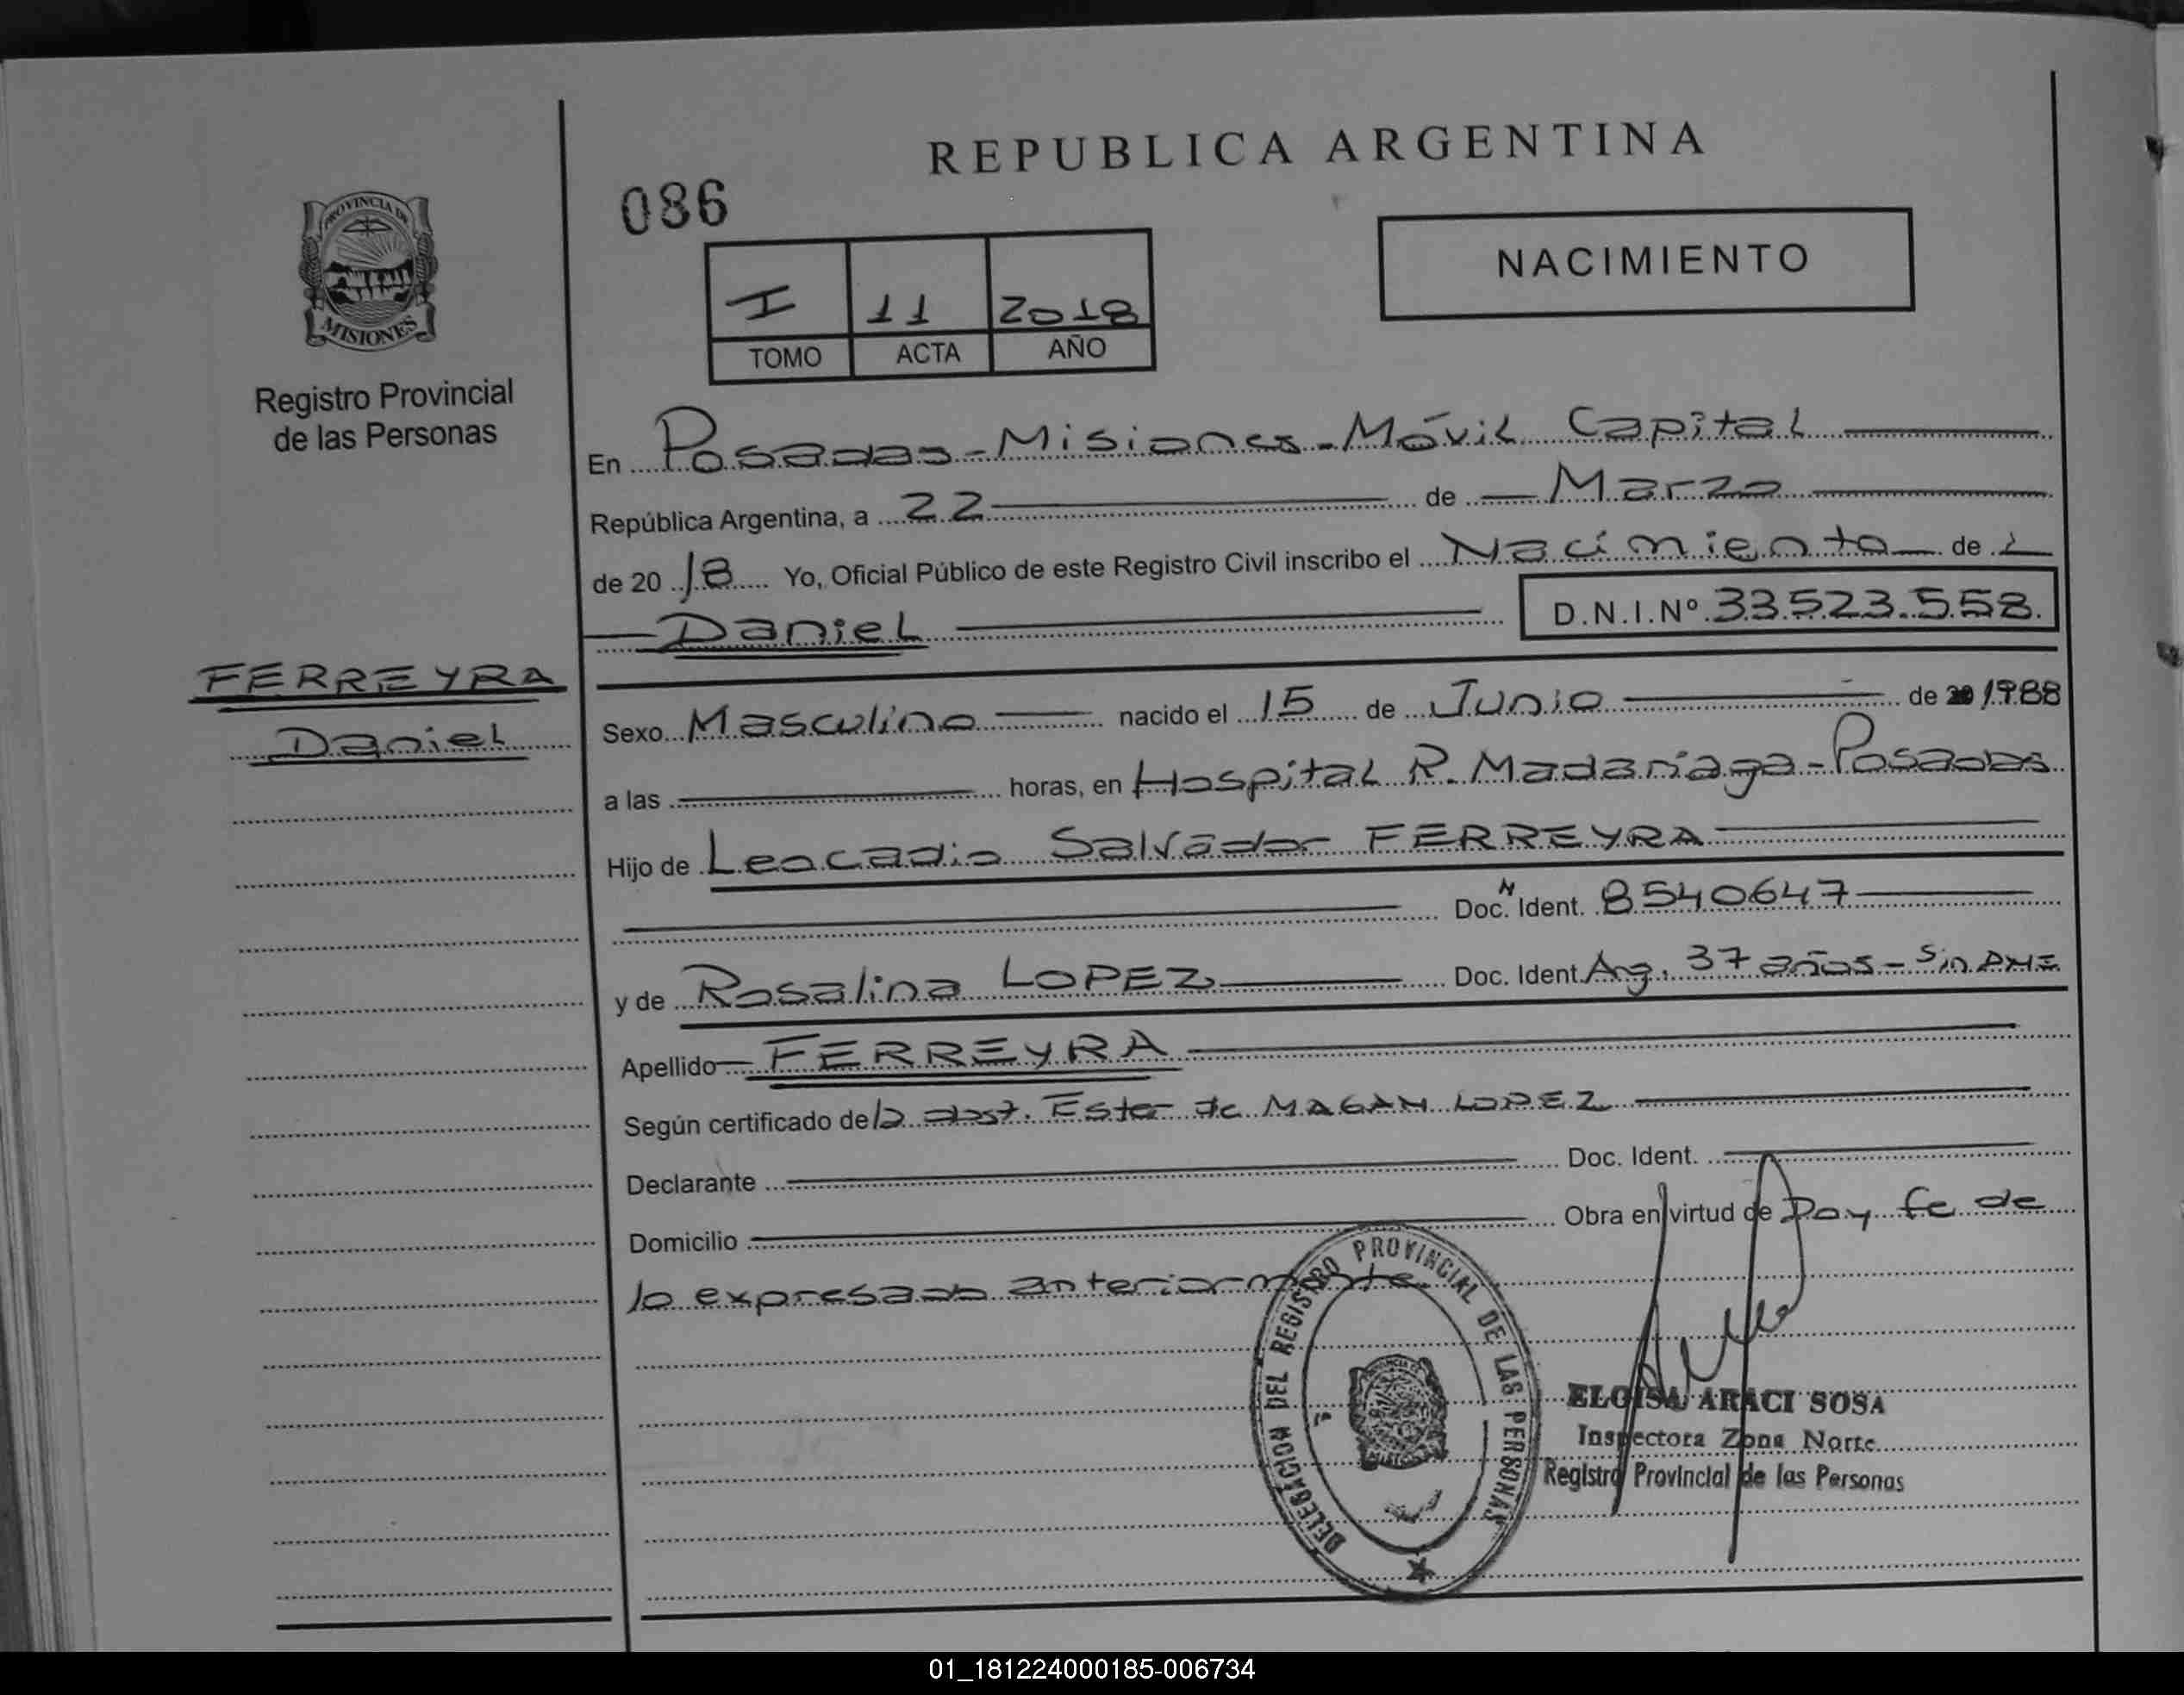 REPUBLICA ARGENTINA
086
NACIMIENTO
I 11 2018
TOMO ACTA AÑO
PROVINCIA DE
MISIONES
Registro Provincial
de las Personas
En Posadas - Misiones - Móvil Capital
República Argentina, a 22 de Marzo
de 2018 Yo, Oficial Público de este Registro Civil inscribo el Nacimiento de
Daniel D.N.I.Nº 33.523.558.
FERREYRA
Daniel
Sexo Masculino nacido el 15 de Junio de 1988
a las horas, en Hospital R. Madariaga - Posadas
Hijo de Leocadio Salvador FERREYRA
Doc. N Ident. 8540647
y de Rosalina LOPEZ Doc. Ident. Arg. 37 años - Sin DNI
Apellido FERREYRA
Según certificado de la obst. Ester de MAGAN LOPEZ
Declarante Doc. Ident.
Domicilio Obra en virtud de Doy fe de
lo expresado anteriormente.
DELEGACION DEL REGISTRO PROVINCIAL DE LAS PERSONAS
ELOISA ARACI SOSA
Inspectora Zona Norte
Registro Provincial de las Personas
01_181224000185-006734